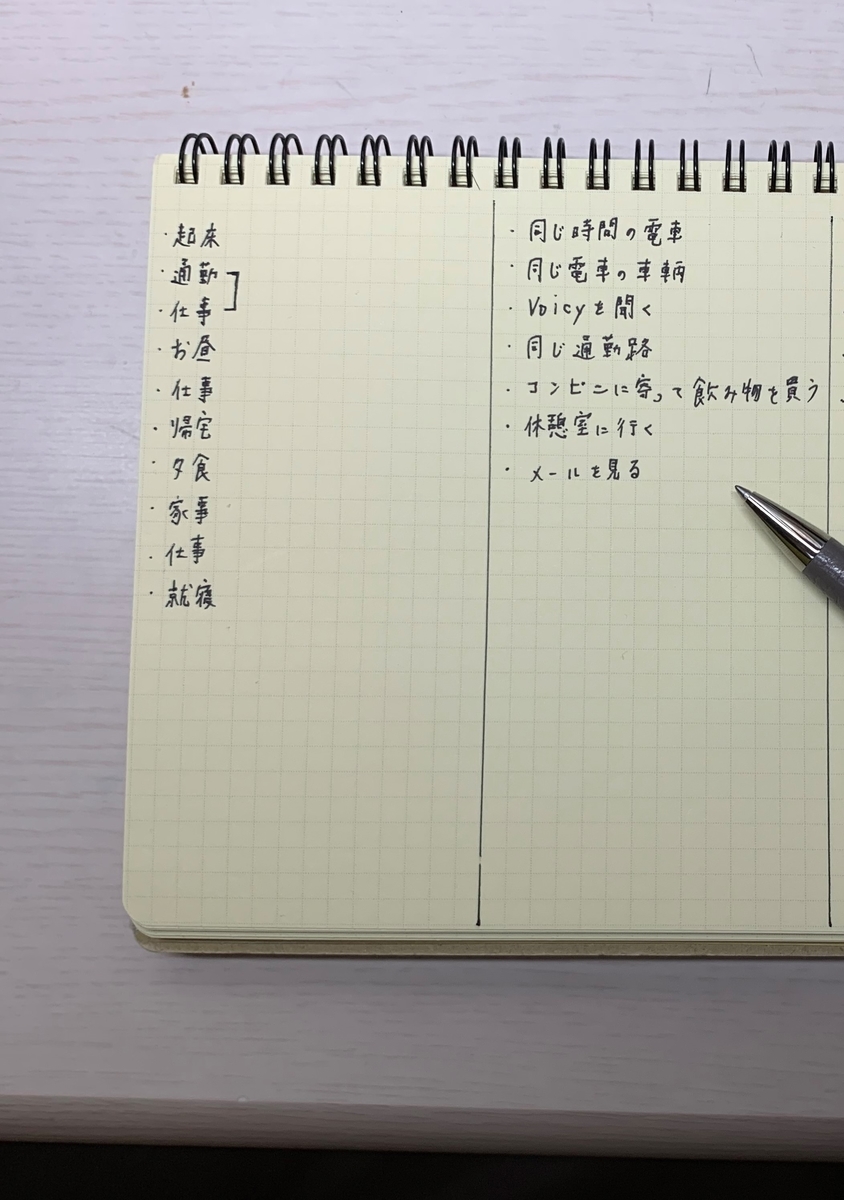 ・起床
・通勤
・仕事
・お昼
・仕事
・帰宅
・夕食
・家事
・仕事
・就寝
・同じ時間の電車
・同じ電車の車輌
・Voicyを聞く
・同じ通勤路
・コンビニに寄って飲み物を買う
・休憩室に行く
・メールを見る